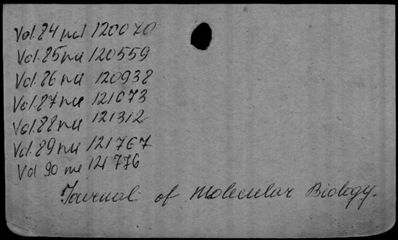 Vol. 84 nul 120070
Vol. 85 nul 120559
Vol. 86 nul 120938
Vol. 87 nul 121073
Vol. 88 nul 121312
Vol. 89 nul 121767
Vol 90 nul 121776
Journal of Molecular Biology.